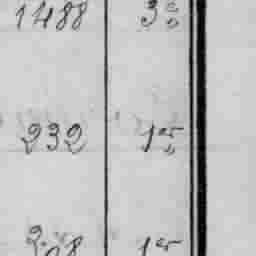 1488 3e
232 1er
208 1er